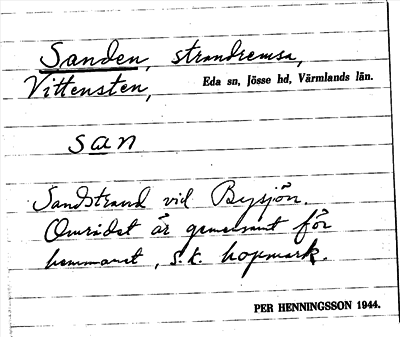 Sanden, strandremsa,
Vittensten, Eda sn, Jösse hd, Värmlands län.
san
Sandstrand vid Bysjön.
Området är gemensamt för
hemmanet, s.k. hopmark.
PER HENNINGSSON 1944.